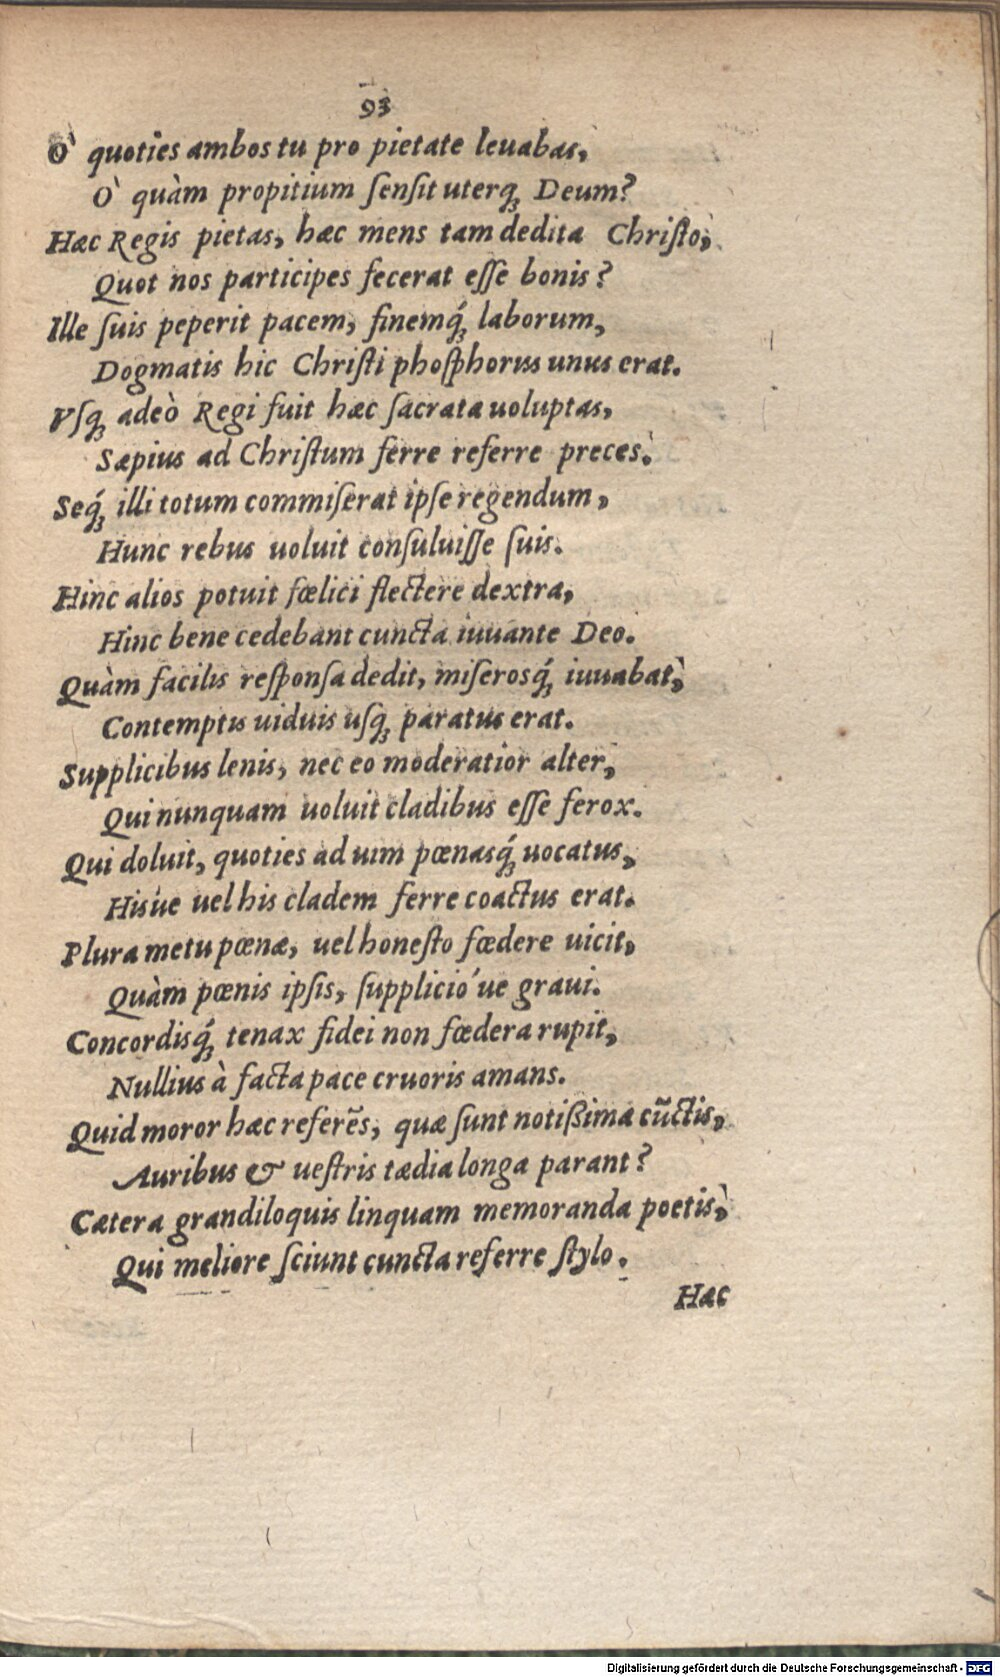 93
O' quoties ambos tu pro pietate leuabas,
O' quàm propitium ſenſit uterqꝫ Deum?
Hæc Regis pietas, hæc mens tam dedita Chriſto,
Quot nos participes fecerat eſſe bonis?
Ille ſuis peperit pacem, finemqꝫ́ laborum,
Dogmatis hic Chriſti phoſphorus unus erat.
Vſqꝫ adeò Regi fuit hæc ſacrata uoluptas,
Sæpius ad Chriſtum ferre referre preces.
Seqꝫ́ illi totum commiſerat ipſe regendum,
Hunc rebus uoluit conſuluiſſe ſuis.
Hinc alios potuit fœlici flectere dextra,
Hinc bene cedebant cuncta iuuante Deo.
Quàm facilis reſponſa dedit, miſerosqꝫ́ iuuabat,
Contemptis uiduis uſqꝫ paratus erat.
Supplicibus lenis, nec eo moderatior alter,
Qui nunquam uoluit cladibus eſſe ferox.
Qui doluit, quoties ad uim pœnasqꝫ́ uocatus,
Hisúe uel his cladem ferre coactus erat.
Plura metu pœnæ, uel honeſto fœdere uicit,
Quàm pœnis ipſis, ſupplicio´ue graui.
Concordisqꝫ́ tenax fidei non fœdera rupit,
Nullius à facta pace cruoris amans.
Quid moror hæc referẽs, quæ ſunt notißima cũctis,
Auribus & ueſtris tædia longa parant?
Cætera grandiloquis linquam memoranda poetis,
Qui meliore ſciunt cuncta referre ſtylo.
Hæc
Digitalisierung gefördert durch die Deutsche Forschungsgemeinschaft - DFG